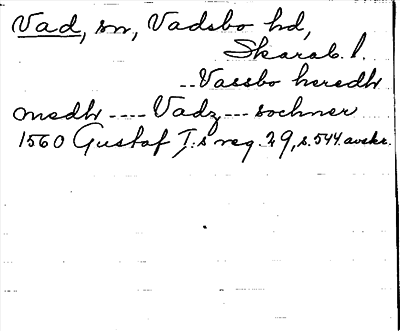 Vad, sn, Vadsbo hd,
Skarab. l.
-- Vassbo heredhr
medhr ---- Vadz --- sochner
1560 Gustaf I:s reg. 29, s. 544. avskr.